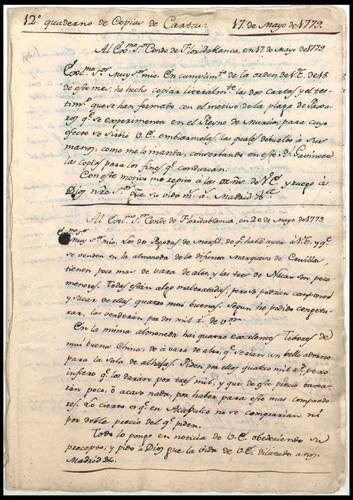 12º quaderno de Copias de Cartas. 17. de Mayo de 1779.
Al Exmo. Sor. Conde de Floridablanca, en 17. de Mayo de 1779
Exmo. Sor. Muy Sr. mio. En cumplimto. de la orden de V.E. de 15
de este mes, he hecho copiar literalmte. las dos cartas y el tes-
timo. que se han formado con el motivo de la plaga de
que se experimenta en el Reyno de Murcia, para cuyo
efecto se sirvió V.E. embiarmelas, las quales debuelvo à sus
manos, como me lo manda, conserbando en este Rl. Gavinete
las copias para los fines qe. conducan.
Con este motivo me repito à las ordns. de V.E. y ruego à
Dios nro. Sor. que su vida ms. as. Madrid &c.
Al Exmo. Sor. Conde de Floridablanca, en 20 de Mayo de 1779.
Muy Sr. mio. Los de qe. hablé ayer à V.E. y qe.
se venden en la almoneda de la difunta Marquesa de
tienen poco mas de vara de alto, y las tres de son po
menores. Todas están algo maltratadas; pero se podrian componer
y sacar de ellas quatro muy buenas. Segun he podido congetu-
rar, las venderán por dos mil rs. de von.
En la misma almoneda hai quatro excelentes Tibores de
mui buena China, de à vara de alto, qe. serian un bello adorno
para la Sala de alhajas. Piden por ellos quatro mil rs. pero
infiero qe. los darán por tres mil, y que de este precio baxarán
poco, ò acaso nada, por haber para este mas comprado-
res. Lo cierto es qe. en Acapulco no se comprarian ni
por doble precio del qe. piden.
Todo lo pongo en noticia de V.E. obedeciendo su
precepto; y pido à Dios que la vida de V.E. dilatados años.
Madrid &c.